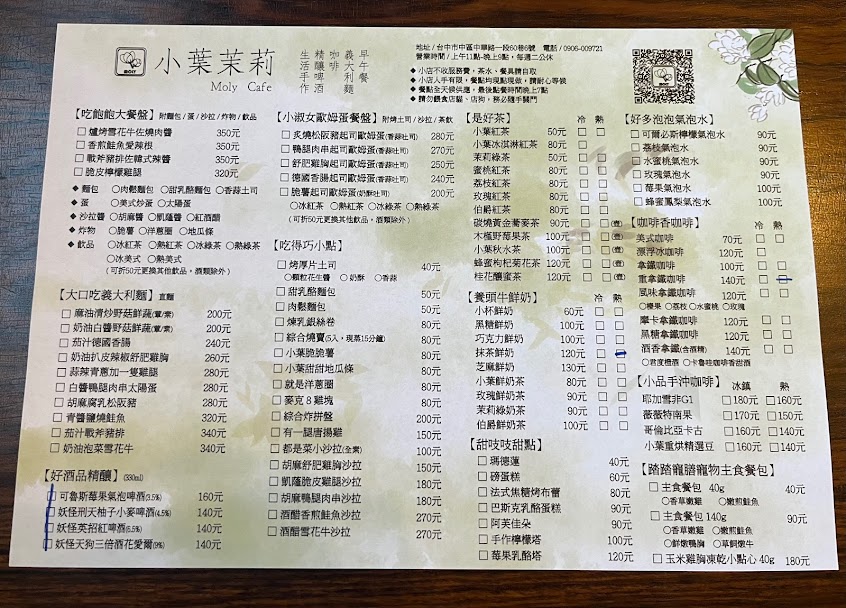 小葉茉莉
Moly Cafe
早午餐
義大利麵
咖啡
精釀啤酒
生活手作
地址 / 台中市中區中華路一段60巷6號 電話 / 0906-009721
營業時間 / 上午11點-晚上9點，每週二公休
◆ 小店不收服務費，茶水、餐具請自取
◆ 小店人手有限，餐點均現點現做，請耐心等候
◆ 餐點全天候供應，最後點餐時間晚上7點
◆ 請勿餵食店貓、店狗，務必隨手關門
【吃飽飽大餐盤】附麵包 / 蛋 / 沙拉 / 炸物 / 飲品
□ 爐烤雪花牛佐燒肉醬 350元
□ 香煎鮭魚愛辣根 350元
□ 戰斧豬排佐韓式辣醬 350元
□ 脆皮檸檬雞腿 320元
◆ 麵包 ○肉鬆麵包 ○甜乳酪麵包 ○香蒜土司
◆ 蛋 ○美式炒蛋 ○太陽蛋
◆ 沙拉醬 ○胡麻醬 ○凱薩醬 ○紅酒醋
◆ 炸物 ○脆薯 ○洋蔥圈 ○地瓜條
◆ 飲品 ○冰紅茶 ○熱紅茶 ○冰綠茶 ○熱綠茶
○冰美式 ○熱美式
（可折50元更換其他飲品，酒類除外）
【大口吃義大利麵】直麵
□ 麻油清炒野菇鮮蔬(葷/素) 200元
□ 奶油白醬野菇鮮蔬(葷/素) 200元
□ 茄汁德國香腸 240元
□ 奶油扒皮辣椒舒肥雞胸 260元
□ 蒜辣青蔥加一隻雞腿 280元
□ 白醬鴨腿肉串太陽蛋 280元
□ 胡麻腐乳松阪豬 280元
□ 青醬鹽燒鮭魚 320元
□ 茄汁戰斧豬排 340元
□ 奶油泡菜雪花牛 340元
【好酒品精釀】(330ml)
□ 可魯斯莓果氣泡啤酒(3.5%) 160元
□ 妖怪刑天柚子小麥啤酒(4.5%) 140元
□ 妖怪英招紅啤酒(5.5%) 140元
□ 妖怪天狗三倍酒花愛爾(9%) 140元
【小淑女歐姆蛋餐盤】附烤土司 / 沙拉 / 茶飲
□ 炙燒松阪豬起司歐姆蛋(香蒜吐司) 280元
□ 鴨腿肉串起司歐姆蛋(香蒜吐司) 270元
□ 舒肥雞胸起司歐姆蛋(香蒜吐司) 250元
□ 德國香腸起司歐姆蛋(香蒜吐司) 240元
□ 脆薯起司歐姆蛋(奶酥吐司) 200元
○冰紅茶 ○熱紅茶 ○冰綠茶 ○熱綠茶
（可折50元更換其他飲品，酒類除外）
【吃得巧小點】
□ 烤厚片土司 40元
○顆粒花生醬 ○奶酥 ○香蒜
□ 甜乳酪麵包 50元
□ 肉鬆麵包 50元
□ 煉乳銀絲卷 50元
□ 綜合燒賣(5入，現蒸15分鐘) 80元
□ 小葉脆脆薯 80元
□ 小葉甜甜地瓜條 80元
□ 就是洋蔥圈 80元
□ 麥克８雞塊 80元
□ 綜合炸拼盤 200元
□ 有一腿唐揚雞 150元
□ 都是菜小沙拉(全素) 100元
□ 胡麻舒肥雞胸沙拉 150元
□ 凱薩脆皮雞腿沙拉 210元
□ 胡麻鴨腿肉串沙拉 270元
□ 酒醋香煎鮭魚沙拉 270元
□ 酒醋雪花牛沙拉 270元
【是好茶】 冷 熱
小葉紅茶 50元 □ □
小葉冰淇淋紅茶 80元 □
茉莉綠茶 50元 □ □
蜜桃紅茶 80元 □ □
荔枝紅茶 80元 □ □
玫瑰紅茶 80元 □ □
伯爵紅茶 80元 □ □
碳燒黃金蕎麥茶 90元 □ □(壺)
木槿野莓果茶 100元 □ □(壺)
小葉秋水茶 100元 □ □(壺)
蜂蜜枸杞菊花茶 120元 □ □(壺)
桂花釀蜜茶 120元 □ □(壺)
【養頭牛鮮奶】 冷 熱
小杯鮮奶 60元 □ □
黑糖鮮奶 100元 □ □
巧克力鮮奶 100元 □ □
抹茶鮮奶 120元 □ □
芝麻鮮奶 130元 □ □
小葉鮮奶茶 80元 □ □
玫瑰鮮奶茶 90元 □ □
茉莉綠奶茶 90元 □ □
伯爵鮮奶茶 100元 □ □
【甜吱吱甜點】
□ 瑪德蓮 40元
□ 磅蛋糕 60元
□ 法式焦糖烤布蕾 80元
□ 巴斯克乳酪蛋糕 90元
□ 阿芙佳朵 90元
□ 手作檸檬塔 100元
□ 莓果乳酪塔 120元
【好多泡泡氣泡水】
□ 可爾必斯檸檬氣泡水 90元
□ 荔枝氣泡水 90元
□ 水蜜桃氣泡水 90元
□ 玫瑰氣泡水 90元
□ 莓果氣泡水 100元
□ 蜂蜜鳳梨氣泡水 100元
【咖啡香咖啡】 冷 熱
美式咖啡 70元 □ □
漂浮冰咖啡 120元 □
拿鐵咖啡 100元 □ □
重拿鐵咖啡 140元 □ □
風味拿鐵咖啡 120元 □ □
○榛果 ○荔枝 ○水蜜桃 ○玫瑰
摩卡拿鐵咖啡 120元 □ □
黑糖拿鐵咖啡 120元 □ □
酒香拿鐵(含酒精) 140元 □ □
○君度橙酒 ○卡魯哇咖啡香甜酒
【小品手沖咖啡】 冰鎮 熱
耶加雪菲G1 □180元 □160元
薇薇特南果 □170元 □150元
哥倫比亞卡古 □160元 □140元
小葉重烘精選豆 □160元 □140元
【踏踏寵膳寵物主食餐包】
□ 主食餐包 40g 40元
○香草嫩雞 ○嫩煎鮭魚
□ 主食餐包 140g 90元
○香草嫩雞 ○嫩煎鮭魚
○鮮嫩鴨胸 ○草飼嫩牛
□ 玉米雞胸凍乾小點心 40g 180元